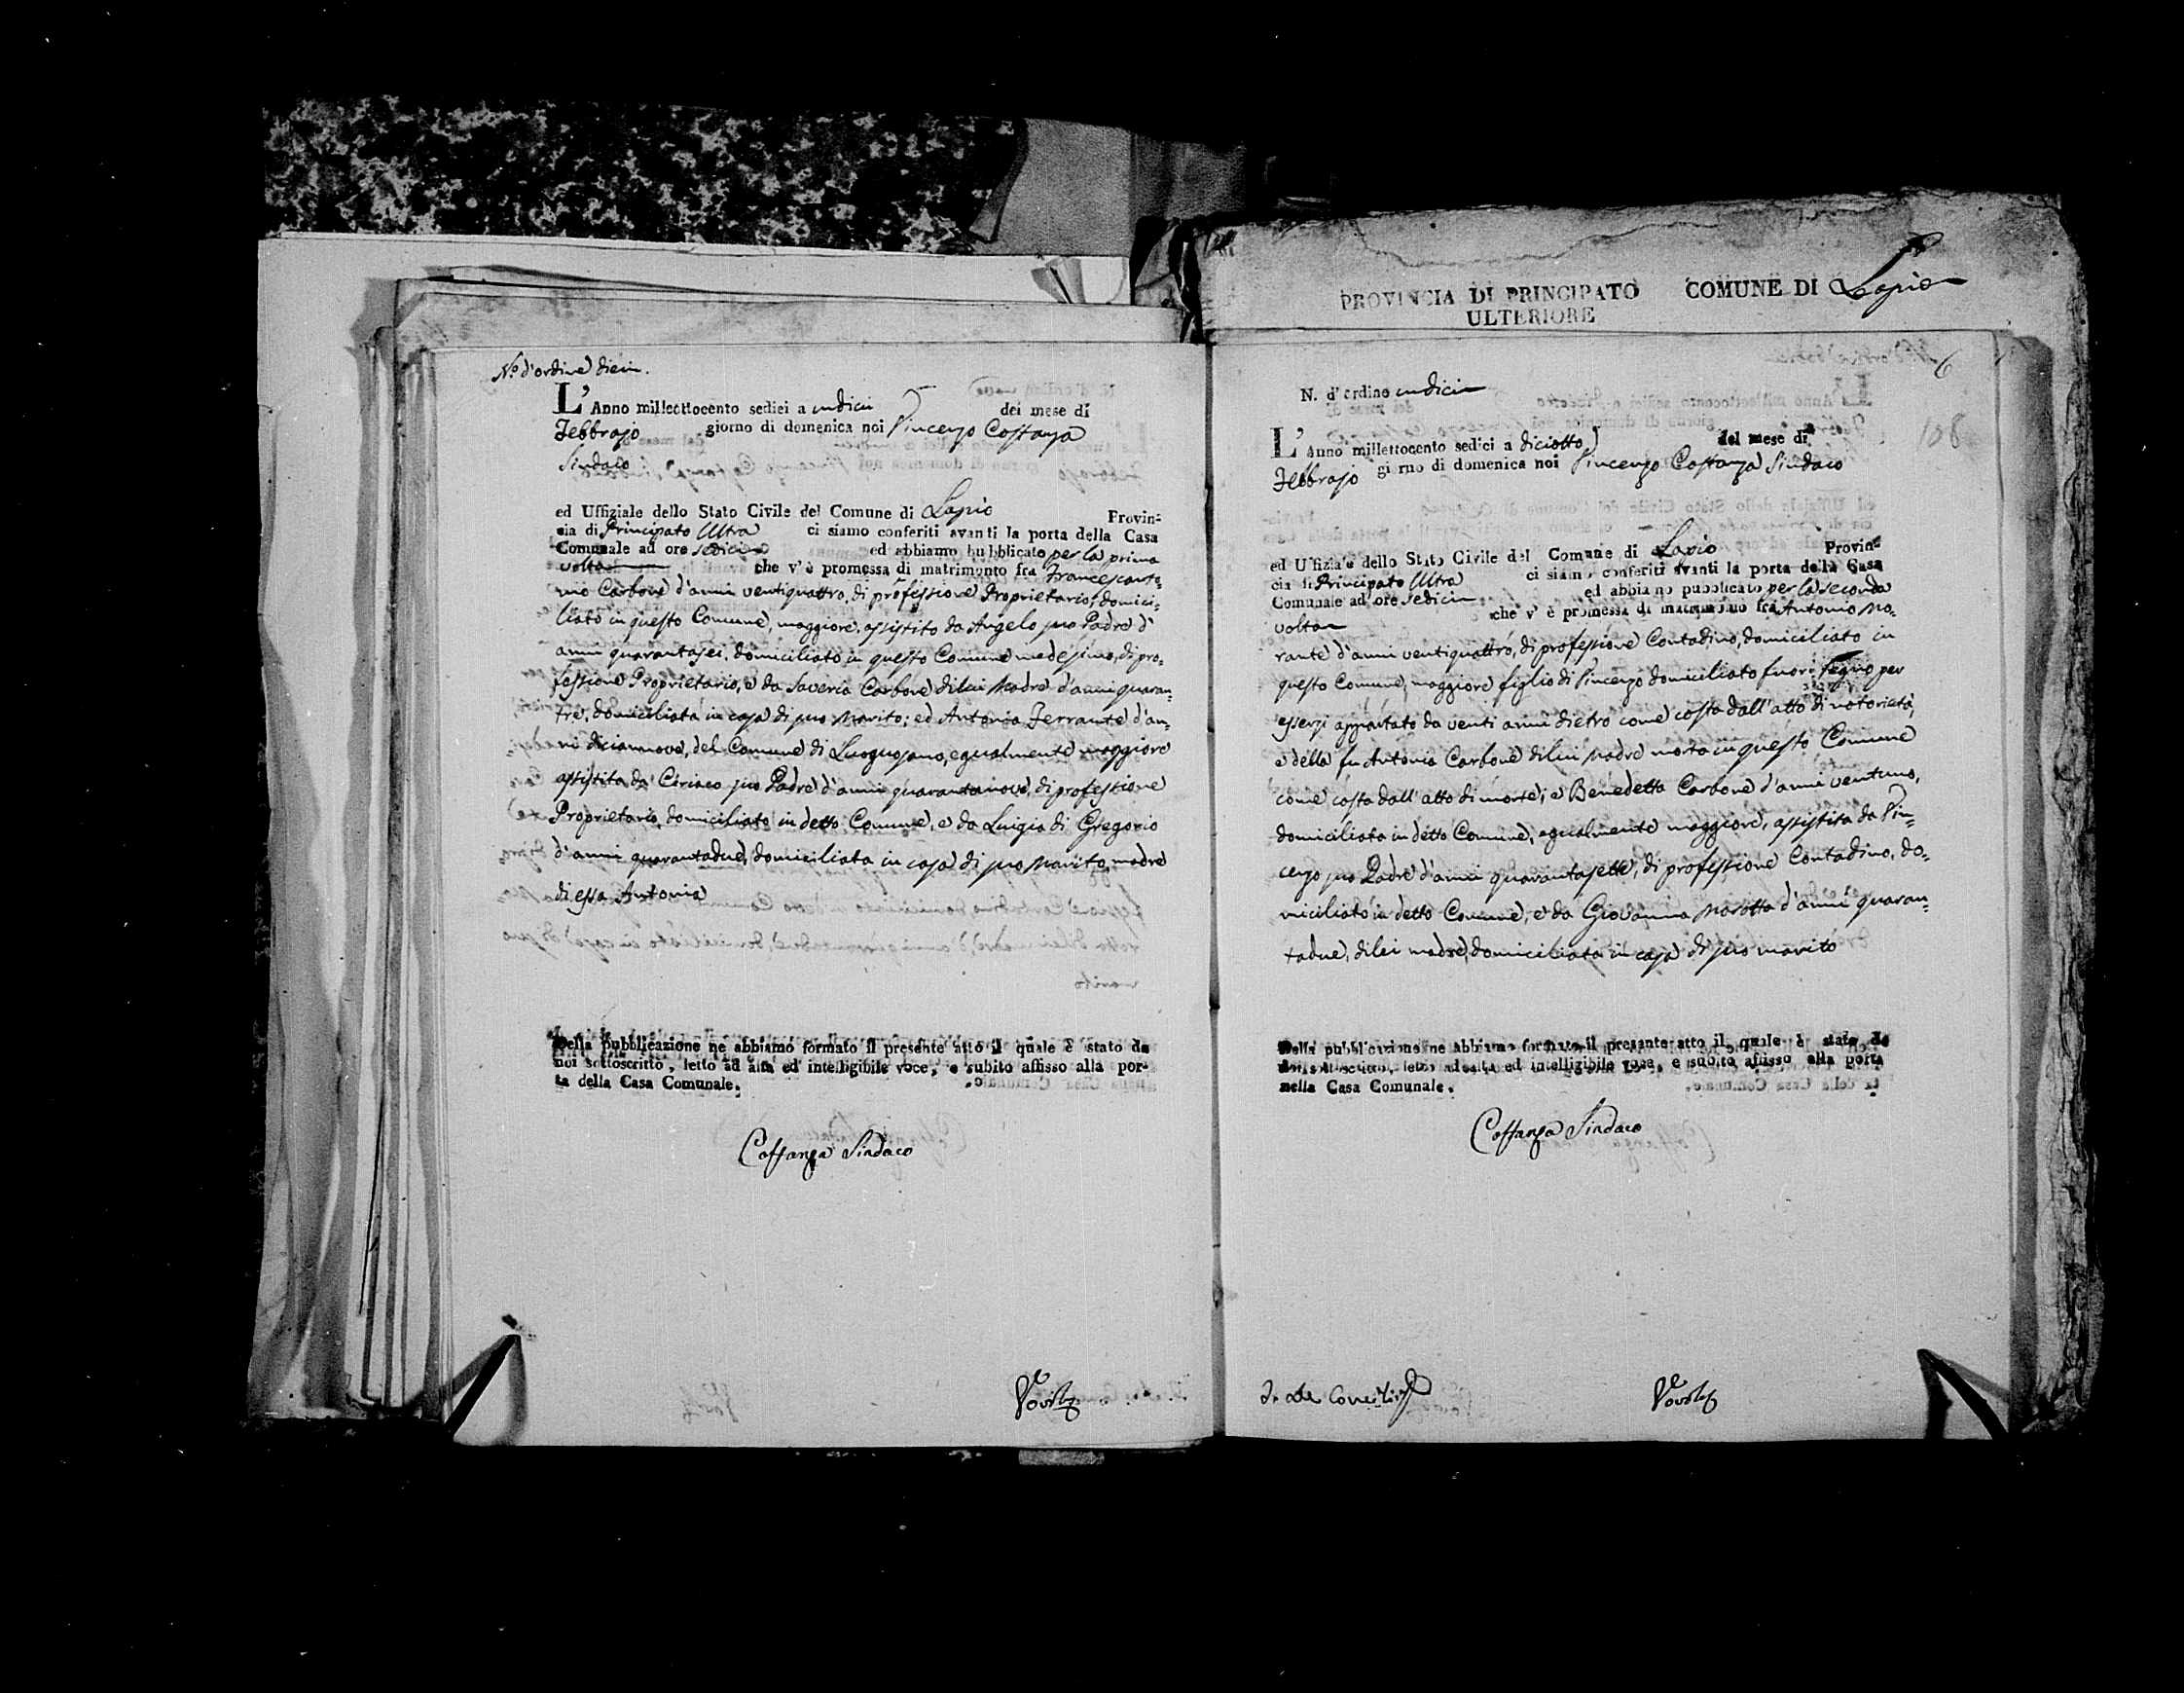 N.º d'ordine dieci.
L'Anno millecttocento sedici a undici del mese di
Febbrajo giorno di domenica noi Vincenzo Costanza
Sindaco
ed Uffiziale dello Stato Civile del Comune di Lapio Provin=
cia di Principato Ultra ci siamo conferiti avanti la porta della Casa
Comunale ad ore sedici ed abbiamo pubblicato per la prima
volta che v'è promessa di matrimonto fra Francescanto=
nio Carbone d'anni ventiquattro, di professione Proprietario, domici=
liato in questo Comune, maggiore, assistito da Angelo suo Padre d'
anni quarantasei, domiciliato in questo Comune medesimo, di pro=
fessione Proprietario, e da Saveria Carbone di lui Madre d'anni quaran=
tre, domiciliata in casa di suo Marito; ed Antonia Ferrante d'an=
ni diciannove, del Comune di Luogosano, egualmente maggiore
assistita da Ciriaco suo Padre d'anni quarantanove, di professione
Proprietario, domiciliato in detto Comune, e da Luigia di Gregorio
d'anni quarantadue, domiciliata in casa di suo Marito, madre
di essa Antonia
Della pubblicazione ne abbiamo formato il presente atto il quale è stato da
noi sottoscritto, letto ad alta ed intelligibile voce, e subito affisso alla por-
ta della Casa Comunale.
Costanza Sindaco
PROVINCIA DI PRINCIPATO COMUNE DI Lapio
ULTERIORE
6
108
N. d'ordine undici
L'Anno millettocento sedici a diciotto del mese di
Febbrajo giorno di domenica noi Vincenzo Costanza Sindaco
ed Uffiziale dello Stato Civile del Comune di Lapio Provin=
cia di Principato Ultra ci siamo conferiti avanti la porta della Casa
Comunale ad ore sedici ed abbiano pubblicato per la seconda
volta che v'è promessa di matrimonio fra Antonio Mo=
rante d'anni ventiquattro, di professione Contadino, domiciliato in
questo Comune, maggiore figlio di Vincenzo domiciliato fuori Regno per
essersi appartato da venti anni dietro come costa dall'atto di notorietà,
e della fu Antonia Carbone di lui Madre morta in questo Comune
come costa dall'atto di morte; e Benedetta Carbone d'anni ventuno,
domiciliata in detto Comune, egualmente maggiore, assistita da Vin=
cenzo suo Padre d'anni quarantasette, di professione Contadino, do=
miciliato in detto Comune, e da Giovanna Marotta d'anni quaran=
tadue, di lei madre, domiciliata in casa di suo marito
Della pubblicazione ne abbiamo formato il presente atto il quale è stato da
noi sottoscritto, letto ad alta ed intelligibile voce, e subito affisso alla porta
nella Casa Comunale.
Costanza Sindaco